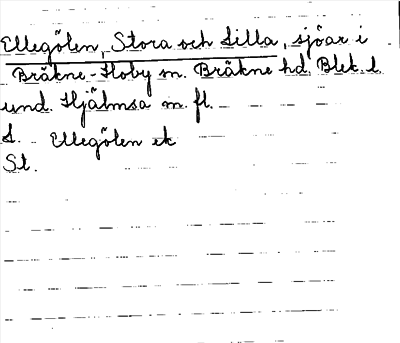 Ellegölen, Stora och Lilla, sjöar i
Bräkne-Hoby sn. Bräkne hd, Blek. l
und. Hjälmsa m. fl.
L. Ellegölen ek
St.